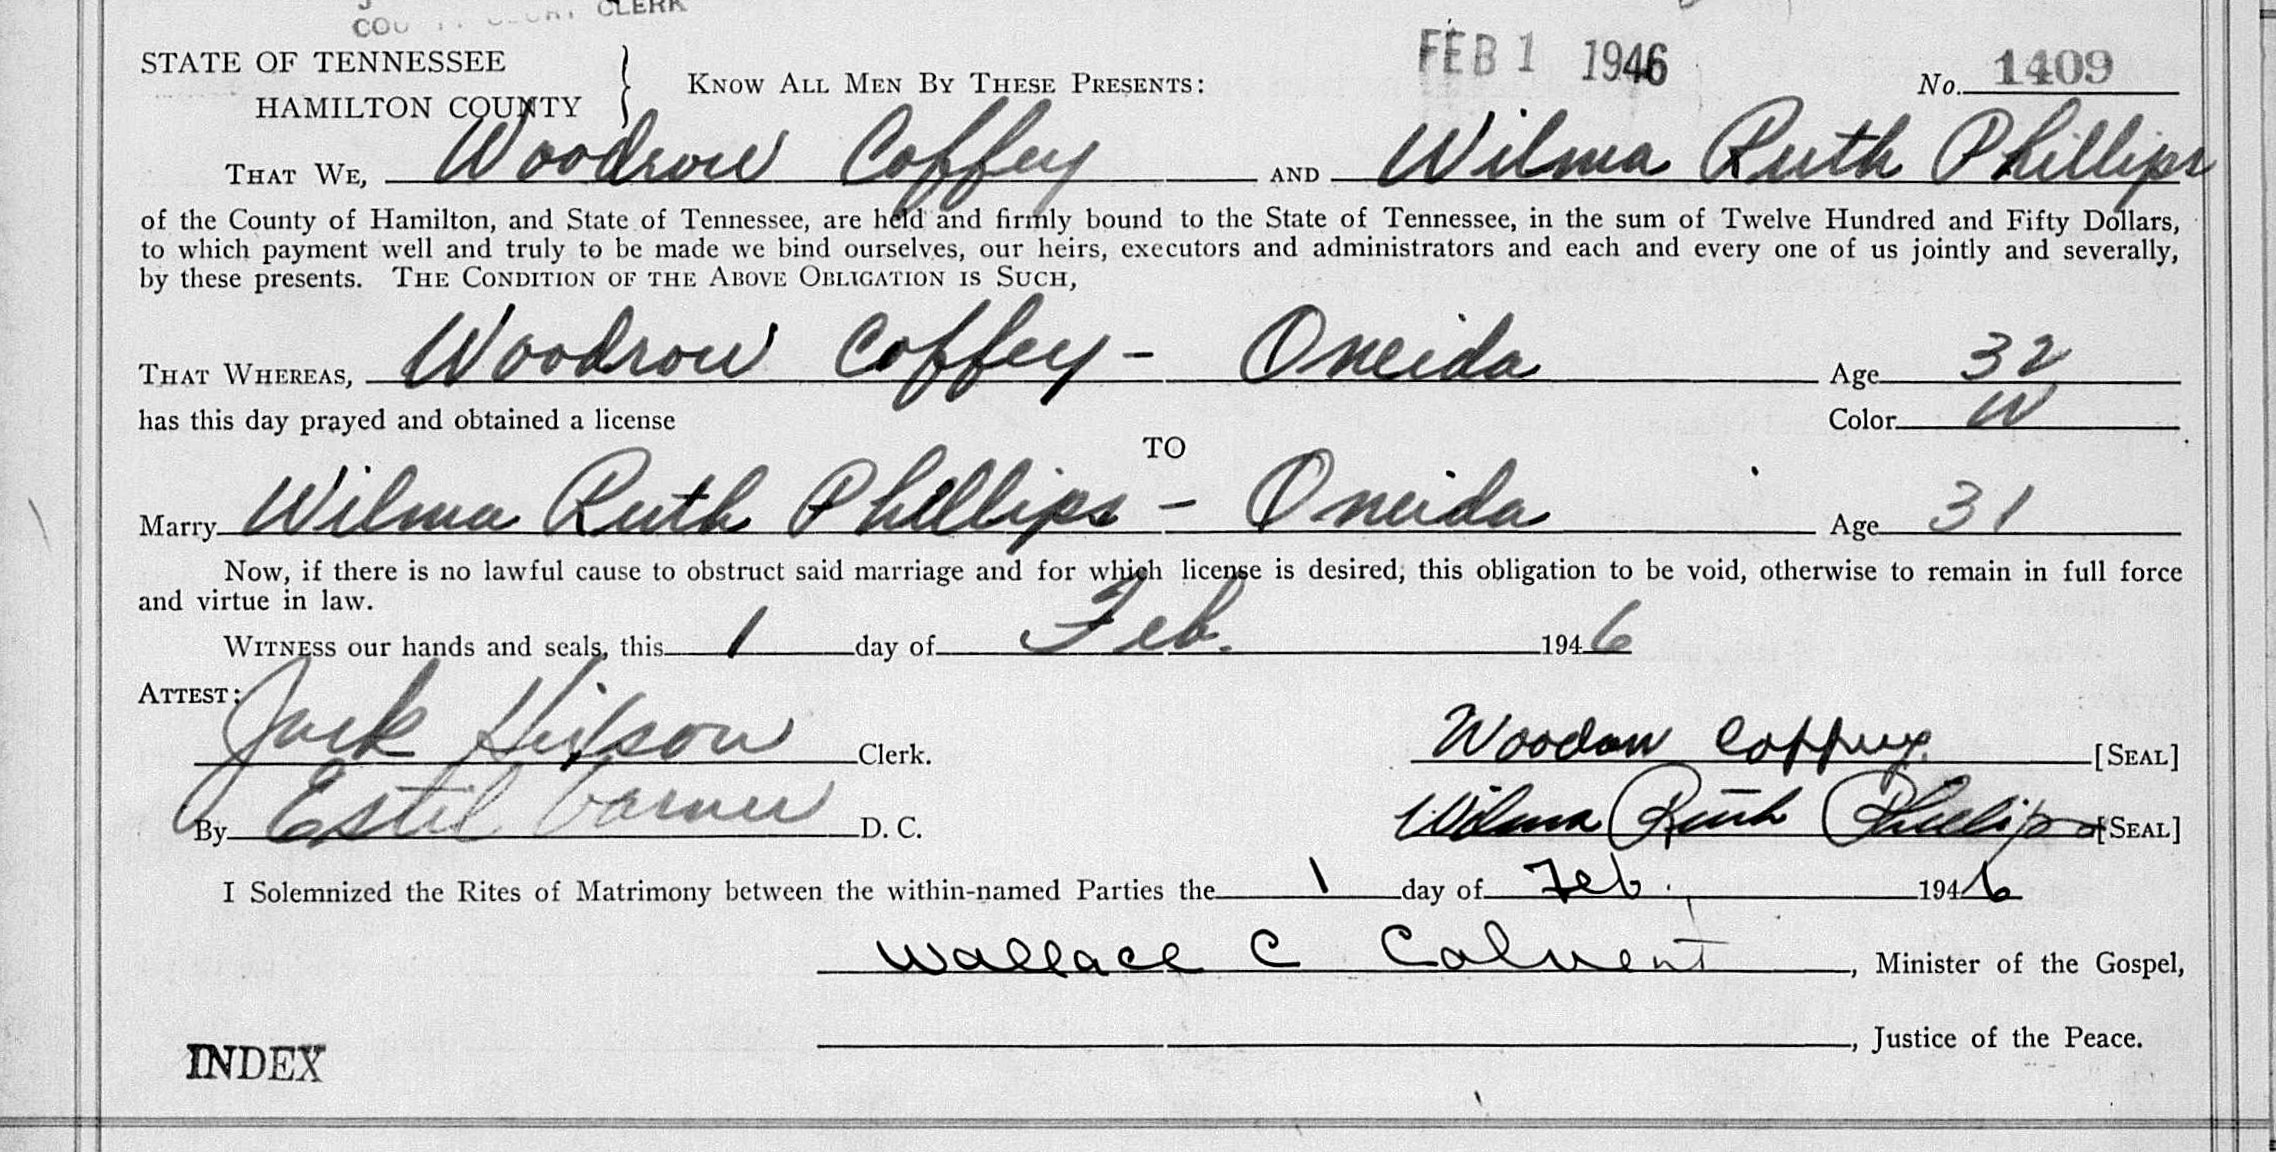 COU CLERK
STATE OF TENNESSEE
HAMILTON COUNTY
KNOW ALL MEN BY THESE PRESENTS:
FEB 1 1946
No. 1409
THAT WE, Woodrow Coffey AND Wilma Ruth Phillips
of the County of Hamilton, and State of Tennessee, are held and firmly bound to the State of Tennessee, in the sum of Twelve Hundred and Fifty Dollars,
to which payment well and truly to be made we bind ourselves, our heirs, executors and administrators and each and every one of us jointly and severally,
by these presents. THE CONDITION OF THE ABOVE OBLIGATION IS SUCH,
THAT WHEREAS, Woodrow Coffey - Oneida Age 32
has this day prayed and obtained a license Color W
TO
Marry Wilma Ruth Phillips - Oneida Age 31
Now, if there is no lawful cause to obstruct said marriage and for which license is desired, this obligation to be void, otherwise to remain in full force
and virtue in law.
WITNESS our hands and seals, this 1 day of Feb. 1946
ATTEST:
Jack Hixson Clerk. Woodow Coffey [SEAL]
By Estil Varner D. C. Wilma Ruth Phillips [SEAL]
I Solemnized the Rites of Matrimony between the within-named Parties the 1 day of Feb. 1946
Wallace C Calvert, Minister of the Gospel,
, Justice of the Peace.
INDEX